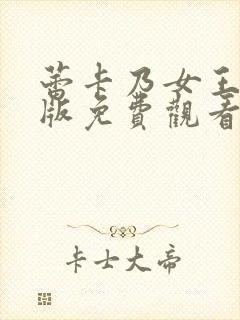 蕾卡乃女王
版免費觀看
卡士大帝